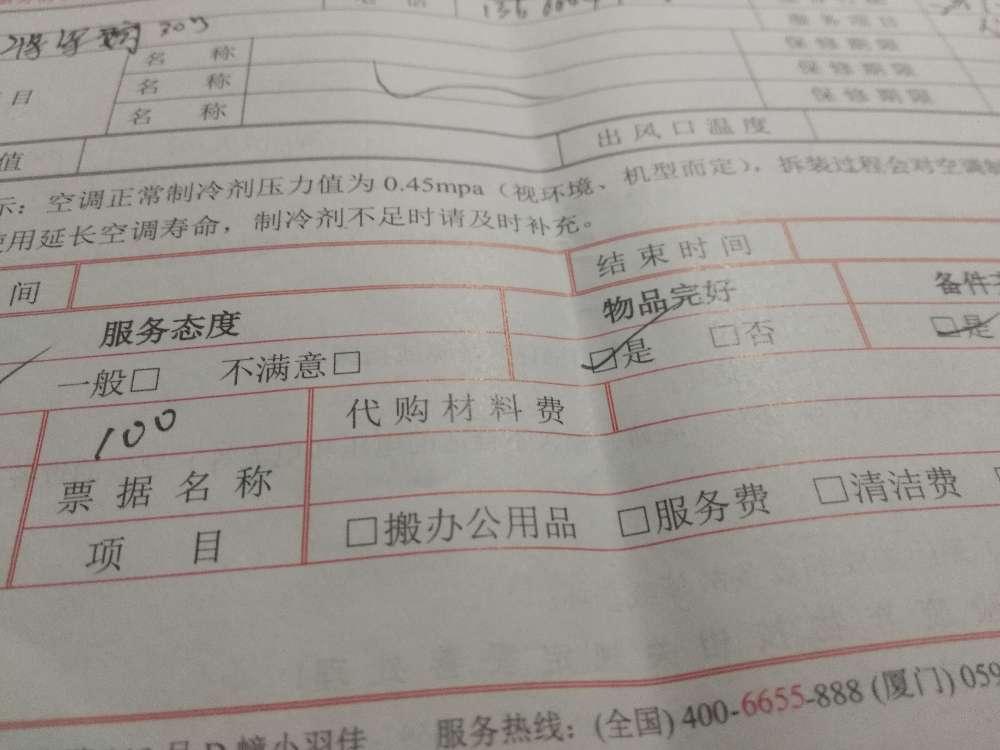 服务项目
名称 保修期限
目 名称 保修期限
名称 保修期限
值 出风口温度
示：空调正常制冷剂压力值为0.45mpa（视环境、机型而定），拆装过程会对空调制
使用延长空调寿命，制冷剂不足时请及时补充。
间 结束时间
服务态度 物品完好 备件
一般□ 不满意□ ☑是 □否 ☑是
100 代购材料费
票据名称
项目 □搬办公用品 □服务费 □清洁费
服务热线：(全国) 400-6655-888 (厦门) 059